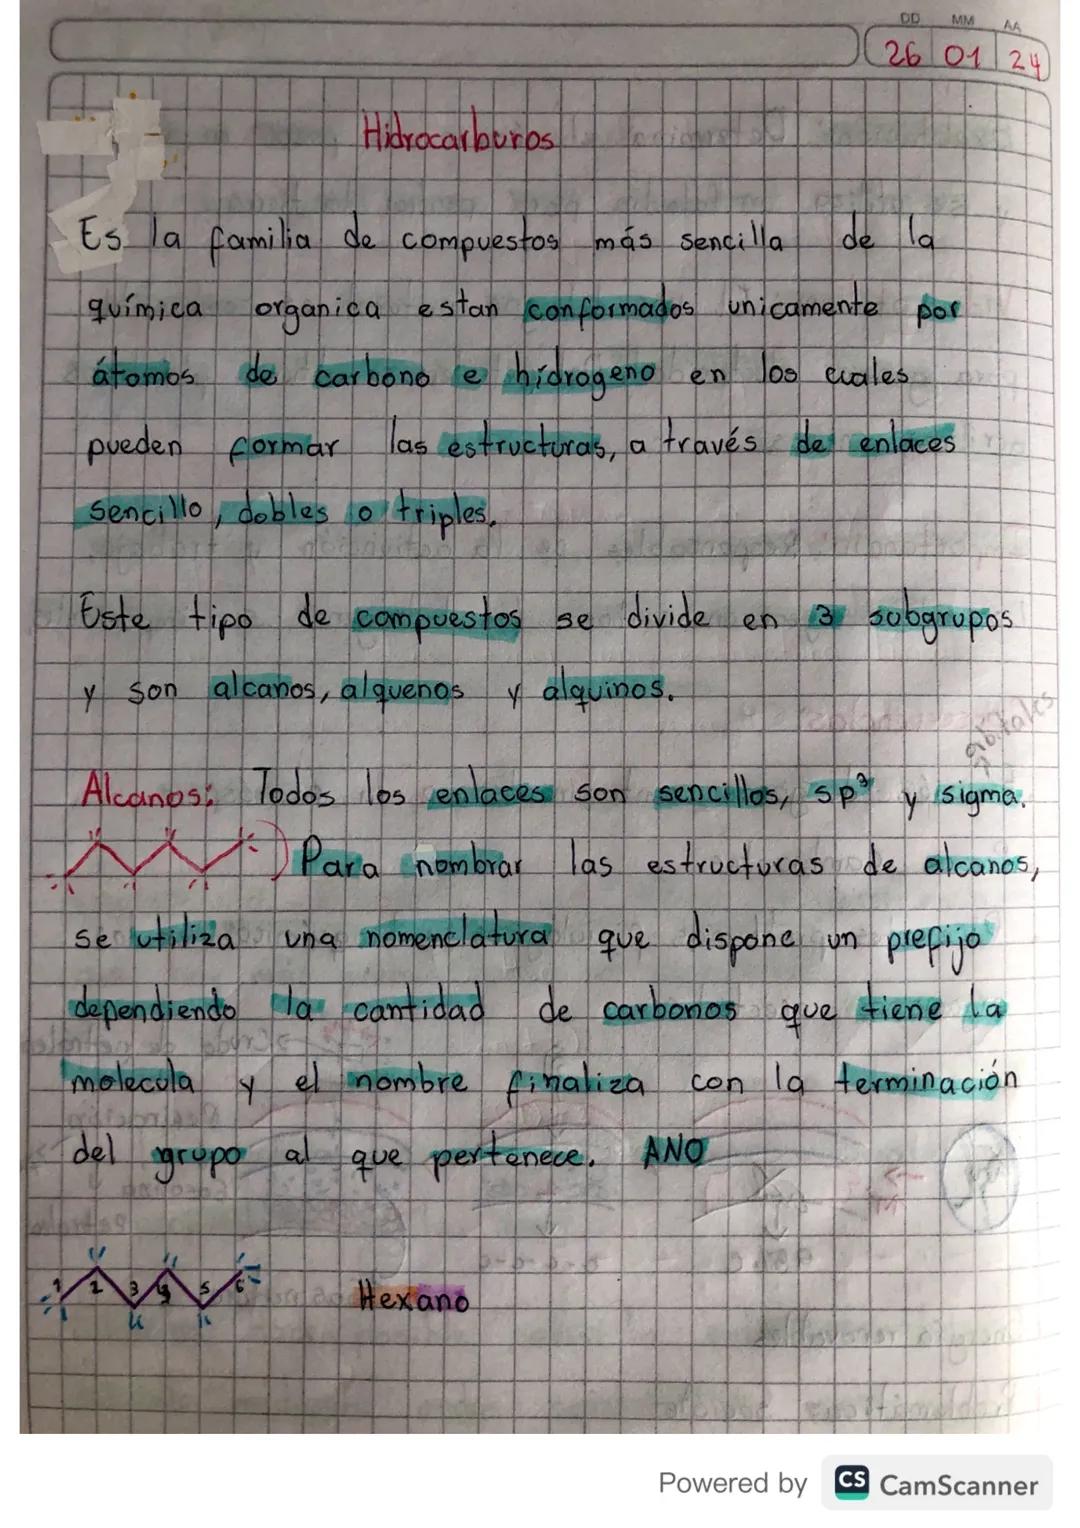 DD MM AA
26 01 24
Hidrocarburos
Es la familia de compuestos más sencilla de la
química organica estan conformados unicamente por
átomos de carbono e hidrogeno en los cuales
pueden formar las estructuras, a través de enlaces
sencillo, dobles o triples.
Este tipo de compuestos se divide en 3 subgrupos
y son alcanos, alquenos y alquinos.
orbitales
Alcanos: Todos los enlaces son sencillos, sp³ y sigma.
Para nombrar las estructuras de alcanos,
se utiliza una nomenclatura que dispone un prefijo
dependiendo la cantidad de carbonos que tiene la
molecula y el nombre finaliza con la terminación
del grupo al que pertenece. ANO
1 2 3 4 5 6 Hexano
Powered by CS CamScanner